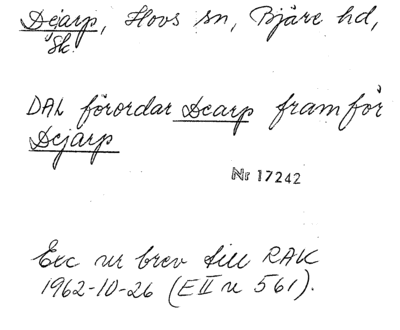 Dearp, Hovs sn, Bjäre hd,
Sk.
DAL förordar Dearp framför
Dejarp
Nr 17242
Exc ur brev till RAK
1962-10-26 (E II u 561).